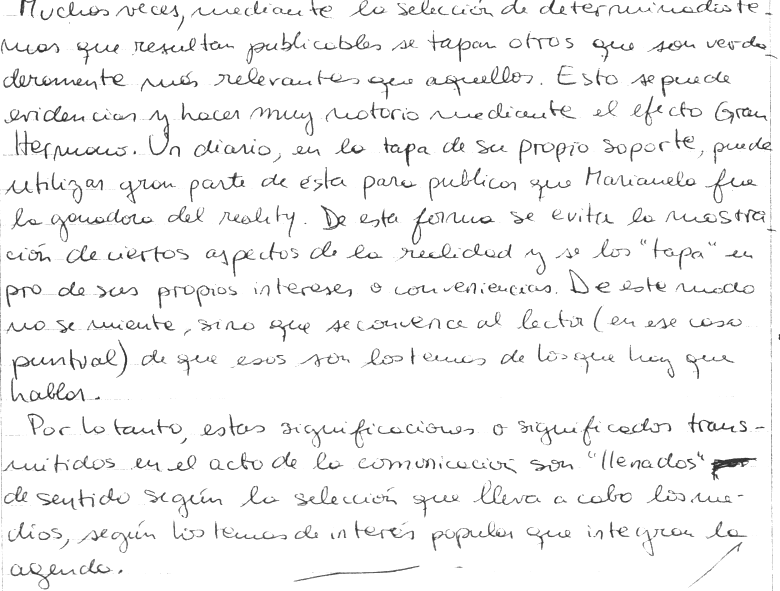 Muchas veces, mediante la selección de determinados te-
mas que resultan publicables se tapan otros que son verda-
deramente más relevantes que aquellos. Esto se puede
evidenciar y hacer muy notorio mediante el efecto Gran
Hermano. Un diario, en la tapa de su propio soporte, puede
utilizar gran parte de ésta para publicar que Marianela fue
la ganadora del reality. De esta forma se evita la mostra-
ción de ciertos aspectos de la realidad y se los "tapa" en
pro de sus propios intereses o conveniencias. De este modo
no se miente, sino que se convence al lector (en ese caso
puntual) de que esos son los temas de los que hay que
hablar.
Por lo tanto, estas significaciones o significados trans-
mitidos en el acto de la comunicación son "llenados"
de sentido según la selección que lleva a cabo los me-
dios, según los temas de interés popular que integran la
agenda.